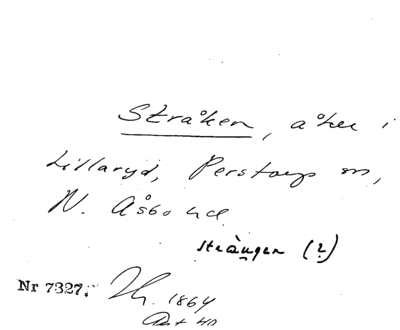 Stråken, åker i
Lillaryd, Perstorps sn,
N. Åsbo hd
strå̀ngen (?)
Nr 7327. Th. 1864
Akt 40